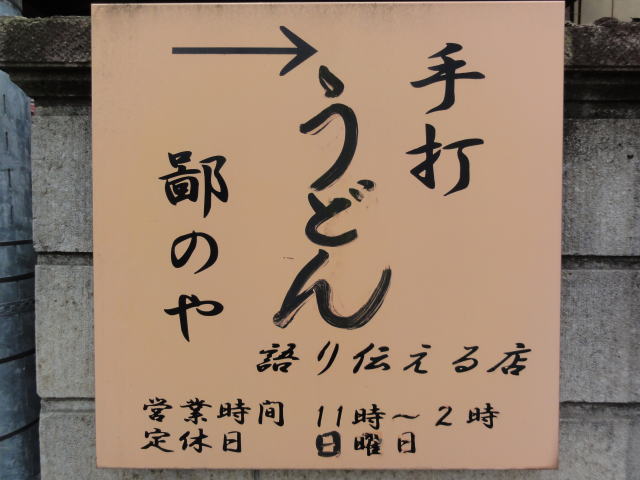 手打
うどん
鄙のや
語り伝える店
営業時間 11時～2時
定休日 日曜日